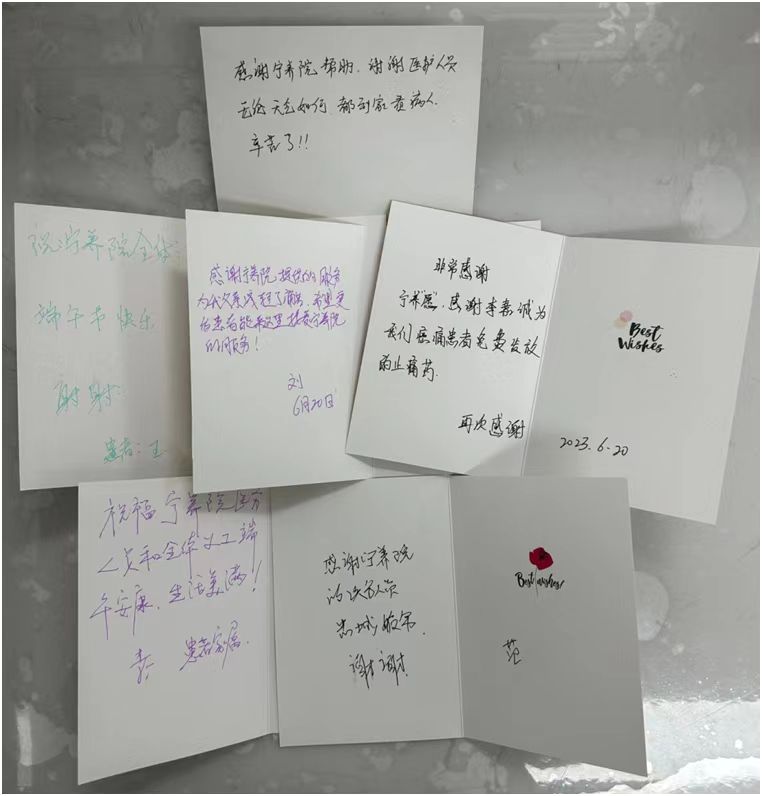 感谢宁养院帮助，谢谢医护人员
无论天气如何，都到家看病人，
辛苦了!!
祝宁养院全体：
端午节快乐
谢谢！
患者：王
感谢宁养院提供的服务
为我次亲减轻了痛苦，希望更
多患者能来这里接受宁养院
的服务！
刘
6月20日
非常感谢
宁养院，感谢李嘉诚为
我们癌痛患者免费发放
的止痛药.
再次感谢
Best
Wishes
2023.6-20
祝福宁养院医务
人员和全体义工端
午安康，生活美满！
患者家属.
感谢宁养院
的医务人员
谢谢！
Best wishes
范